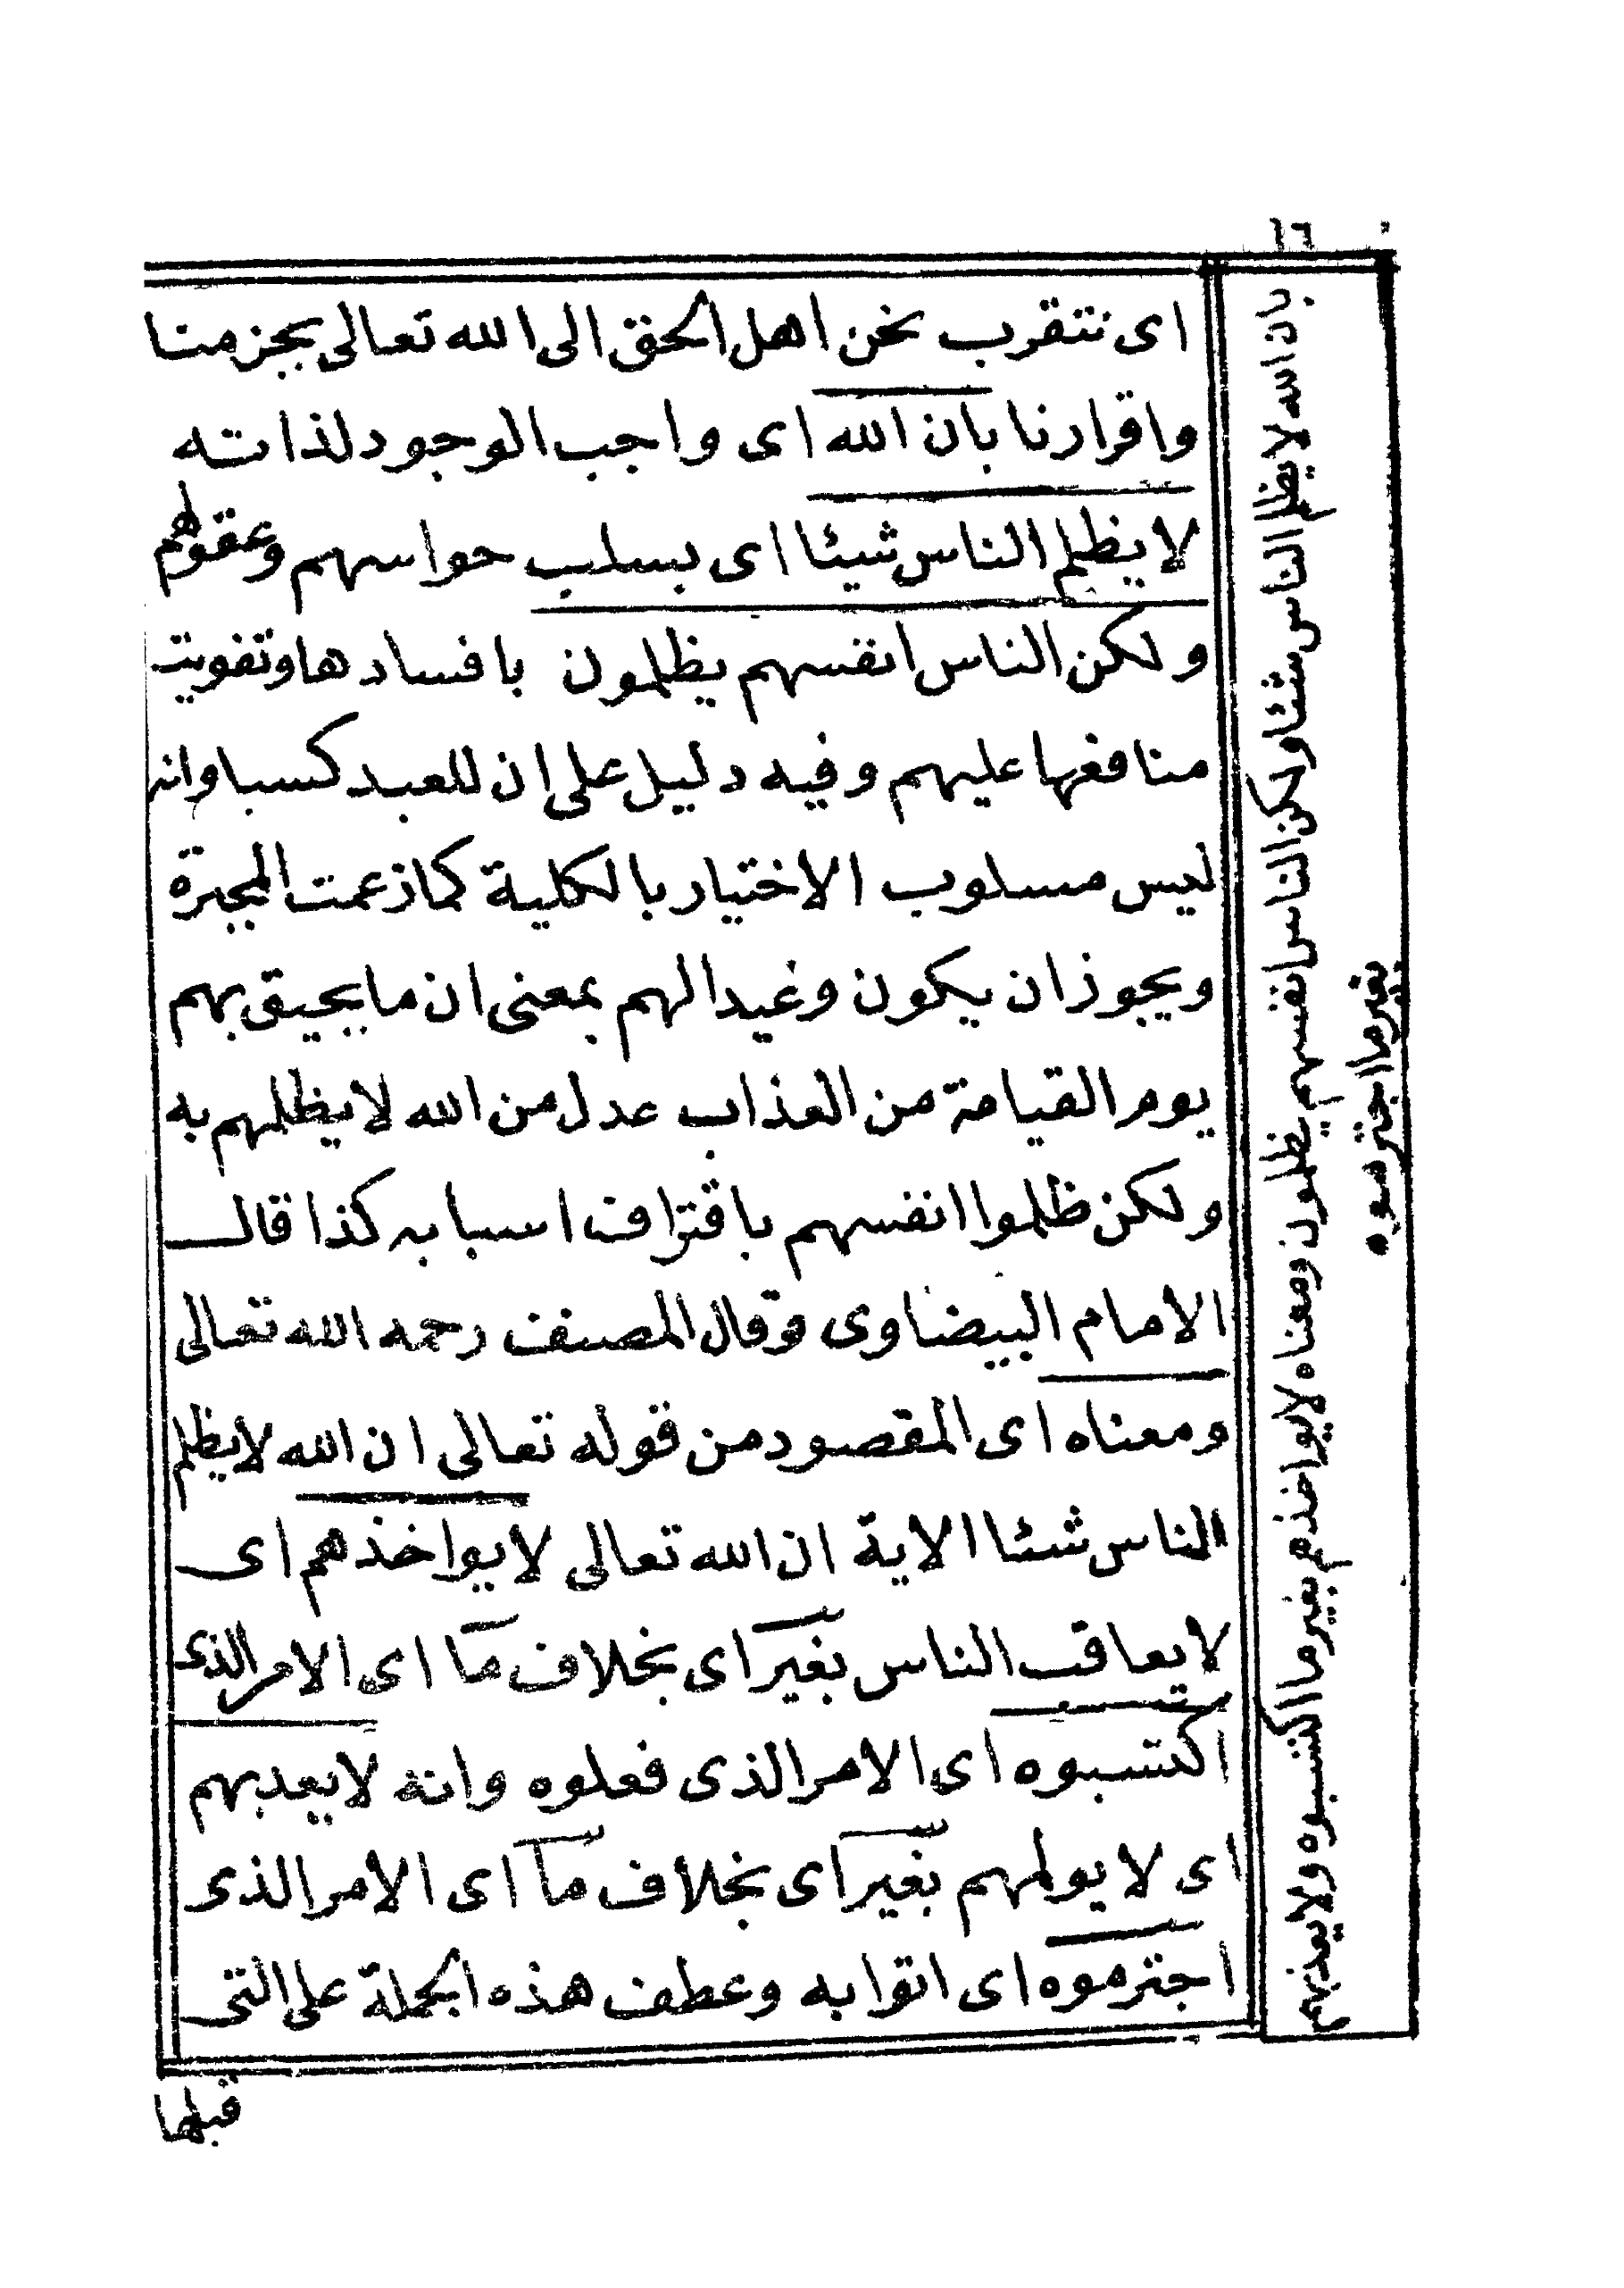 ١٦
اى نتقرب نحن اهل الحق الى الله تعالى بجزمنا
واقرارنا بان الله اى واجب الوجود لذاته
لا يظلم الناس شيئا اى بسلب حواسهم وعقولهم
ولكن الناس انفسهم يظلمون بافسادها وتفويت
منافعها عليهم وفيه دليل على ان للعبد كسبا وانه
ليس مسلوب الاختيار بالكلية كما زعمت المجبرة
ويجوز ان يكون وغيدا لهم بمعنى ان ما يحيق بهم
يوم القيامة من العذاب عدل من الله لا يظلمهم به
ولكن ظلموا انفسهم باقتراف اسبابه كذا قال
الامام البيضاوى وقال المصنف رحمه الله تعالى
ومعناه اى المقصود من قوله تعالى ان الله لا يظلم
الناس شئا الاية ان الله تعالى لا يواخذهم اى
لا يعاقب الناس بغير اى بخلاف ما اى الامر الذى
اكتسبوه اى الامر الذى فعلوه وانه لا يعدبهم
اى لا يولمهم بغير اى بخلاف ما اى الامر الذى
اجترموه اى اتوا به وعطف هذه الجملة على التى
قبلها
بان الله لا يظلم الناس شئا ولكن الناس انفسهم يظلمون ومعناه لا يواخذهم بغير ما اكتسبوه ولا يعذبهم
بغير ما اجترموه